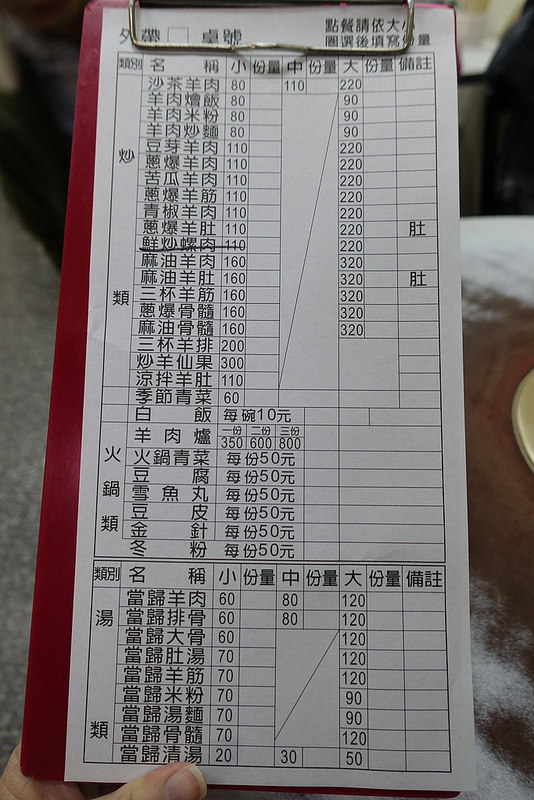 外帶 □ 桌號 點餐請依大小
圈選後填寫份量
類別 名稱 小 份量 中 份量 大 份量 備註
炒類
沙茶羊肉 80 110 220
羊肉燴飯 80 90
羊肉米粉 80 90
羊肉炒麵 80 90
豆芽羊肉 110 220
蔥爆羊肉 110 220
苦瓜羊肉 110 220
蔥爆羊筋 110 220
青椒羊肉 110 220
蔥爆羊肚 110 220 肚
鮮炒螺肉 110 220
麻油羊肉 160 320
麻油羊肚 160 320 肚
三杯羊筋 160 320
蔥爆骨髓 160 320
麻油骨髓 160 320
三杯羊排 200
炒羊仙果 300
涼拌羊肚 110
季節青菜 60
白飯 每碗10元
火鍋類
羊肉爐 一份 二份 三份
350 600 800
火鍋青菜 每份50元
豆腐 每份50元
雪魚丸 每份50元
豆皮 每份50元
金針 每份50元
冬粉 每份50元
類別 名稱 小 份量 中 份量 大 份量 備註
湯類
當歸羊肉 60 80 120
當歸排骨 60 80 120
當歸大骨 60 120
當歸肚湯 70 120
當歸羊筋 70 120
當歸米粉 70 90
當歸湯麵 70 90
當歸骨髓 70 120
當歸清湯 20 30 50